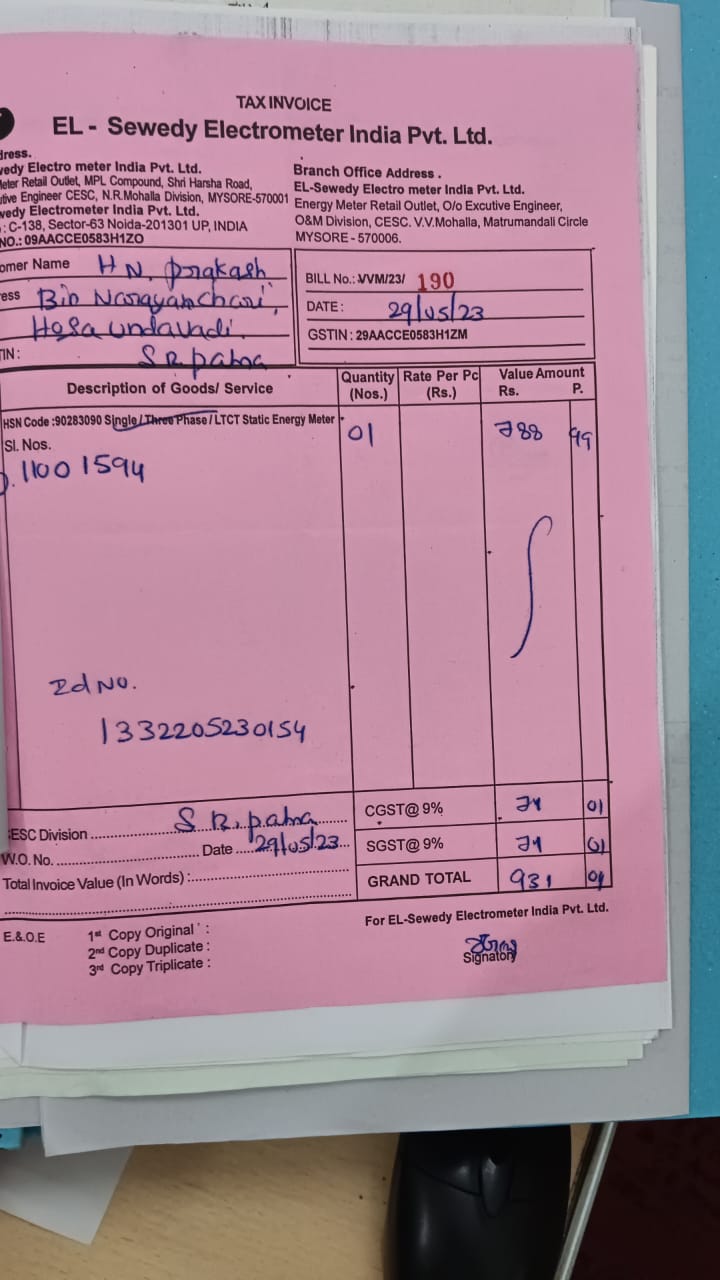 TAX INVOICE
EL - Sewedy Electrometer India Pvt. Ltd.
dress.
vedy Electro meter India Pvt. Ltd.
Meter Retail Outlet, MPL Compound, Shri Harsha Road,
utive Engineer CESC, N.R.Mohalla Division, MYSORE-570001
wedy Electrometer India Pvt. Ltd.
: C-138, Sector-63 Noida-201301 UP, INDIA
NO.: 09AACCE0583H1ZO
Branch Office Address .
EL-Sewedy Electro meter India Pvt. Ltd.
Energy Meter Retail Outlet, O/o Excutive Engineer,
O&M Division, CESC. V.V.Mohalla, Matrumandali Circle
MYSORE - 570006.
omer Name H N. Prakash
ess Bin Narayanchari,
Hosaundavadi.
TIN: S R. patna
BILL No.: VVM/23/ 190
DATE : 29/05/23
GSTIN : 29AACCE0583H1ZM
Description of Goods/ Service Quantity (Nos.) Rate Per Pc (Rs.) Value Amount Rs. P.
HSN Code :90283090 Single / Three Phase / LTCT Static Energy Meter 01 788 99
Sl. Nos.
11001594
Id No.
1332205230154
CESC Division S R. patna CGST@ 9% 71 01
W.O. No. Date 29/05/23 SGST@ 9% 71 01
Total Invoice Value (In Words) : GRAND TOTAL 931 01
For EL-Sewedy Electrometer India Pvt. Ltd.
E.&.O.E 1st Copy Original :
2nd Copy Duplicate :
3rd Copy Triplicate :
Signatory